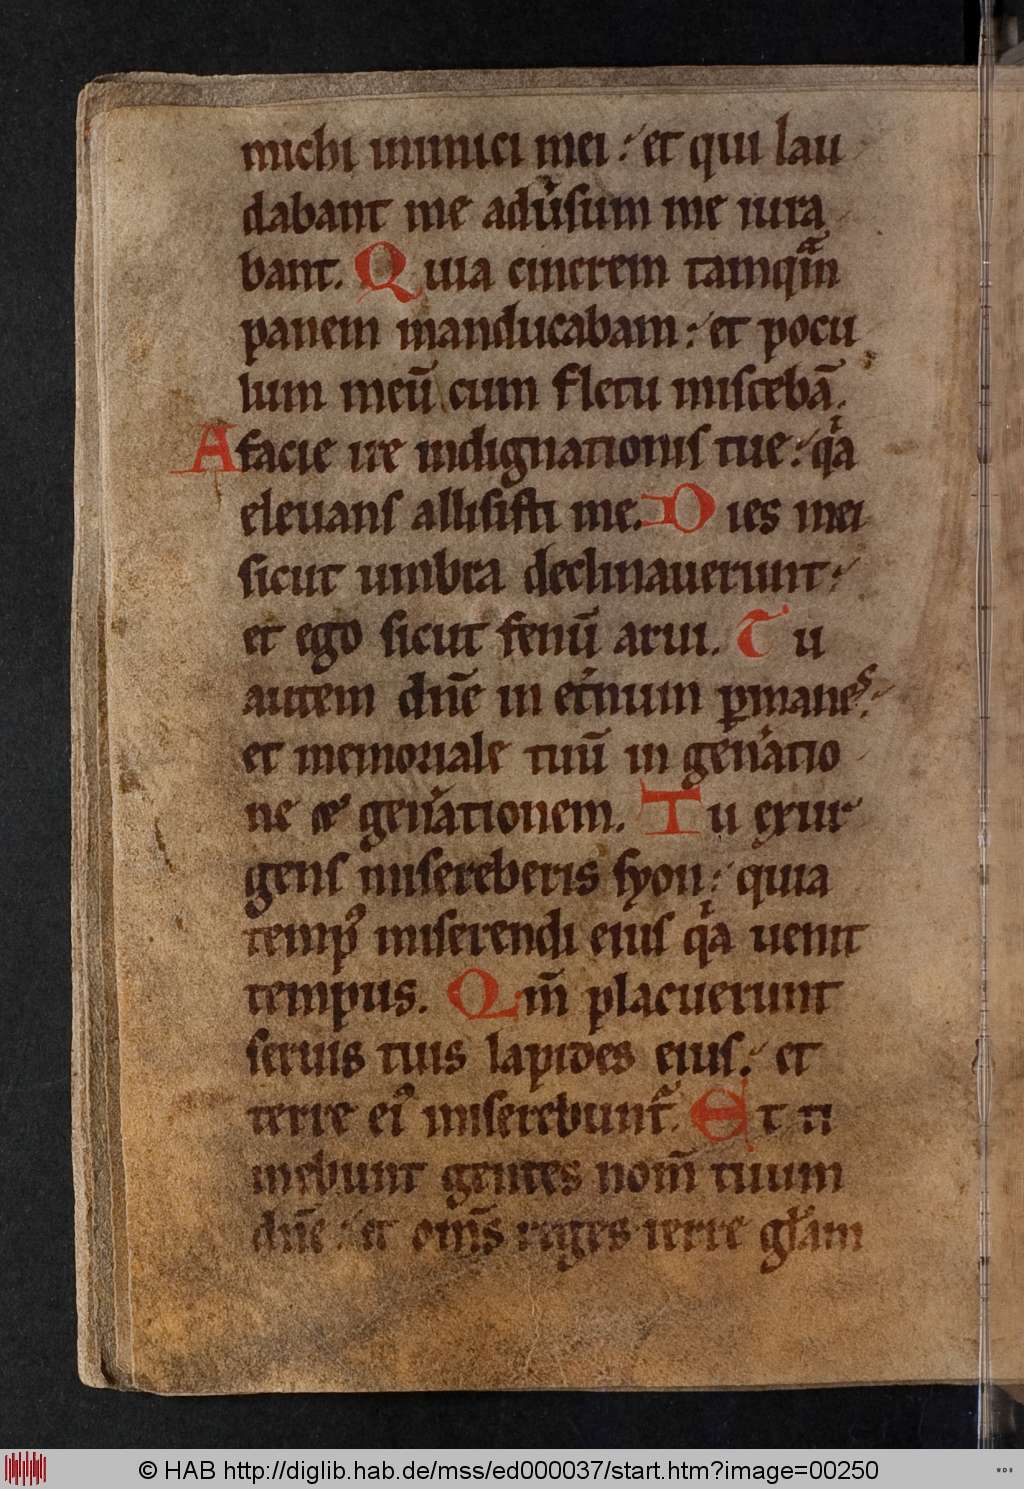 michi inimici mei : et qui lau
dabant me adu͛sum me iura
bant. Quia cinerem tamqᷓm
panem manducabam : et pocu
lum meū cum fletu miscebā.
A facie ire indignationis tue : qͥa
eleuans allisisti me. Dies mei
sicut umbra declinauerunt :
et ego sicut fenū arui. Tu
autem dn̄e in et͛num ꝑmanes :
et memoriale tuū in gen͛atio
ne et gen͛ationem. Tu exur
gens misereberis syon : quia
tempꝰ miserendi eius qͥa uenit
tempus. Qm̄ placuerunt
seruis tuis lapides eius : et
terre eiꝰ miserebunt᷑. Et ti
mebunt gentes nom̄ tuum
dn̄e : et om̄s reges terre gl̄am
© HAB http://diglib.hab.de/mss/ed000037/start.htm?image=00250